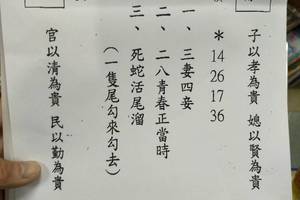 子以孝為貴 媳以賢為貴
＊14 26 17 36
一、三妻四妾
二、二八青春正當時
三、死蛇活尾溜
（一隻尾勾來勾去）
官以清為貴 民以勤為貴